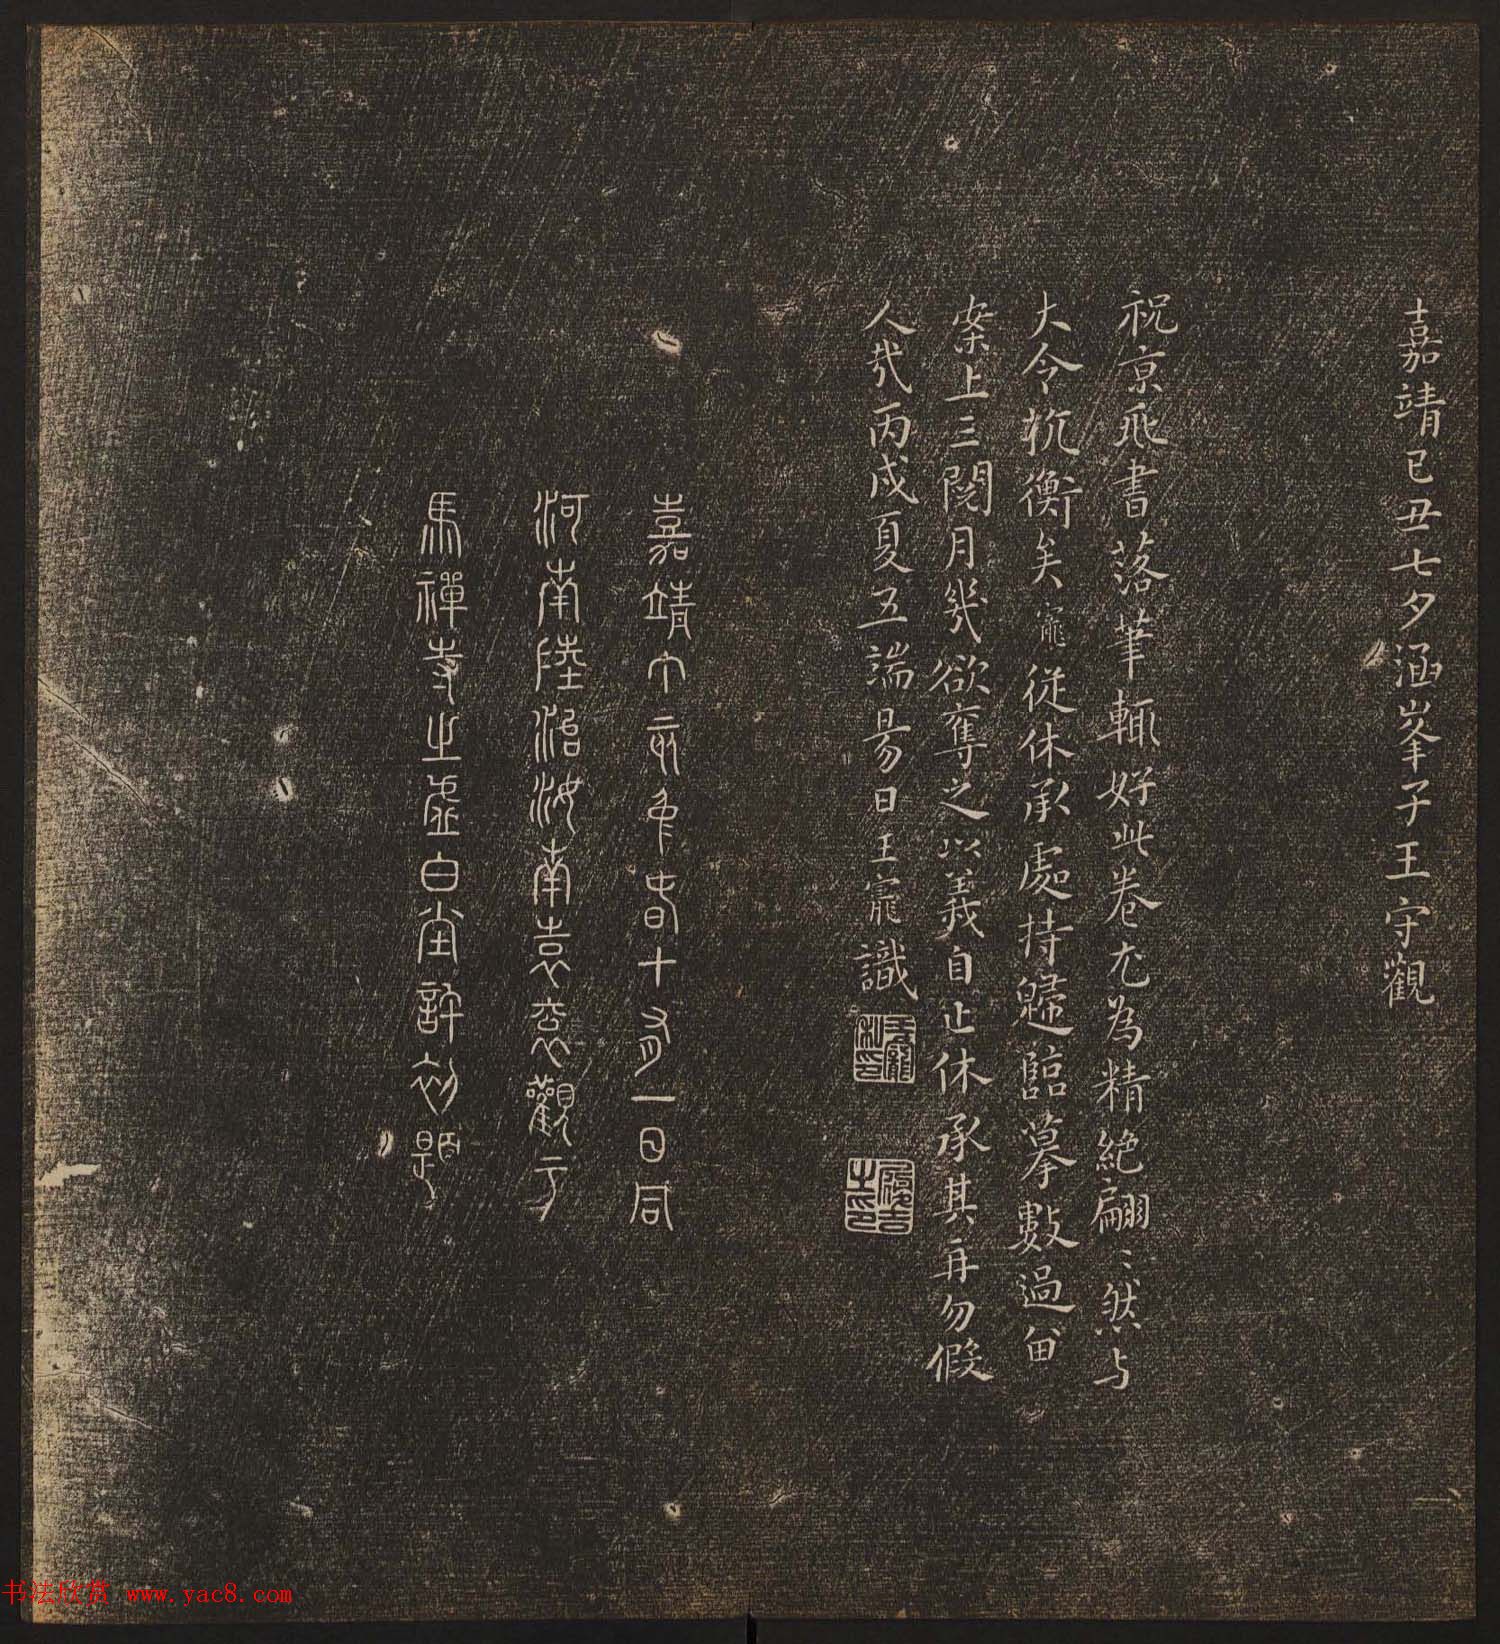 嘉靖己丑七夕涵峯子王守觀
祝京兆書落筆輒好此卷尤為精絶翩〻然与
大令抗衡矣寵從休承處持歸臨摹數過留
案上三閱月幾欲奪之以義自止休承其再勿假
人哉丙戌夏五端昜日王寵識
王寵私印
履吉之印
嘉靖丁亥年春十又一日同
河南陸治汝南袁袠觀于
馬禪寺之虛白堂許初題
书法欣赏 www.yac8.com